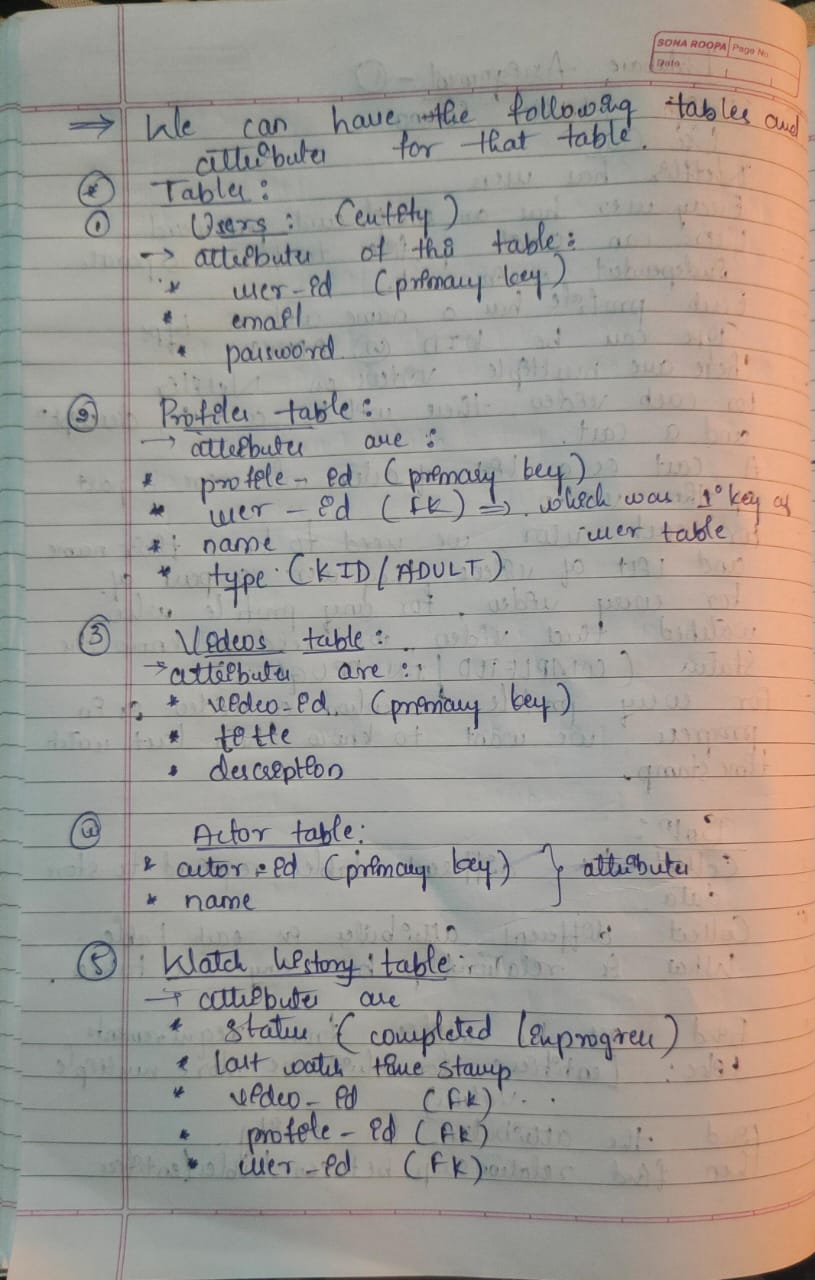 SONA ROOPA Page No.
Date
⇒ We can have the following tables and
attributes for that table.
* Tables:
① Users: (entity)
→ attributes of this table:
* user-id (primary key)
* email
* password
② Profiles table:
→ attributes are:
* profile-id (primary key)
* user-id (FK) ⇒ which was 1° key of
user table
* name
* type (KID/ADULT)
③ Videos table:
→ attributes are:
* video-id (primary key)
* title
* description
④ Actor table:
* actor-id (primary key) } attributes
* name
⑤ Watch history table:
→ attributes are
* status (completed/inprogress)
* last watch time stamp
* video-id (FK)
* profile-id (FK)
* user-id (FK)